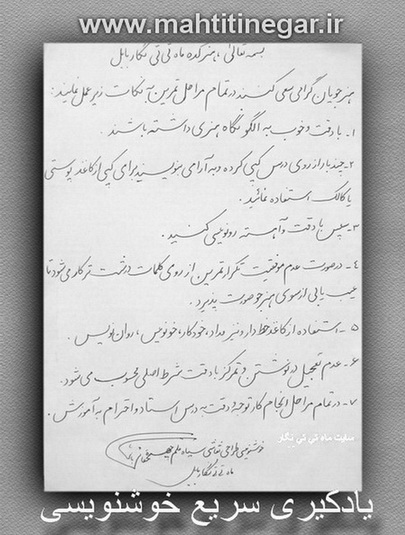 www.mahtitinegar.ir
بسمه تعالی، هنرکده ماه تی تی نگار بابل
هنرجویان گرامی سعی کنند در تمام مراحل تمرین به نکات زیر عمل نمایند:
۱- با دقت و خوب به الگو نگاه هنری داشته باشند.
۲- چند بار از روی درس کپی کرده و به آرامی بنویسند برای کپی از کاغذ پوستی
یا کالک استفاده نمائید.
۳- سپس با دقت و آهسته رونویسی کنید.
۴- در صورت عدم موفقیت تکرار تمرین از روی کلمات درشت تر کار می شود تا
عیب یابی از سوی هنرجو صورت پذیرد.
۵- استفاده از کاغذ خط دار و نیز مداد، خودکار، خودنویس، روان نویس.
۶- عدم تعجیل در نوشتن و تمرکز با دقت شرط اصلی محسوب می شود.
۷- در تمام مراحل انجام کار توجه و دقت به درس استاد و احترام به آموزش.
سایت ماه تی تی نگار
خوشنویسی طراحی نقاشی سیاه قلم
ماه تی تی نگار بابل
یادگیری سریع خوشنویسی